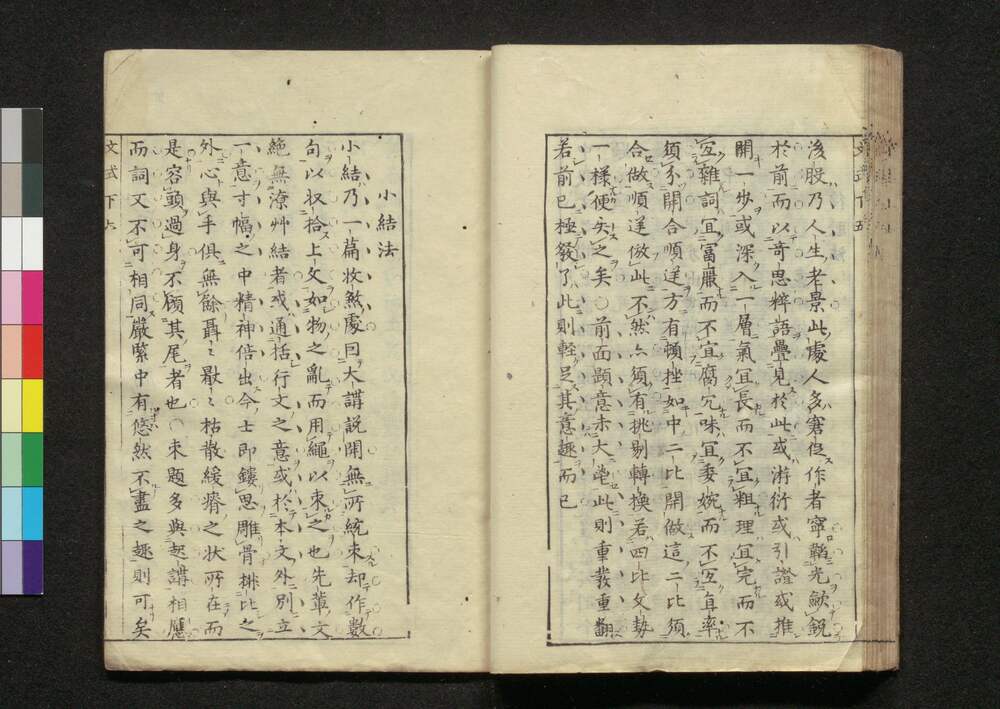 後股乃人生老景此處人多窘促作者寧韜光歛鋭
於前而以奇思粹語疊見於此或游衍或引證或推
開一步或深入一層氣宜長而不宜粗理宜完而不
宜雜詞宜富嚴而不宜腐冗味宜委婉而不宜直率
須分開合順逆方有頓挫如中二比開做這二比須
合做順逆倣此不然亦須有挑剔轉換若四比文勢
一樣便失之矣○前面顕意未大此則重發重翻
若前已極發了此則輕足其意趣而已
文式下五
小結法
小結乃一篇收煞處曰大講説開無所統束却作數
句以収拾上文如物之亂而用繩以束之也先輩文
絶無潦艸結者或通括行文之意或於本文外別立
一意寸幅之中精神倍出今士即鏤思雕骨排比之
外心與手俱無餘聶〻散〻枯散緩瘠之状所在而
是容頭過身不顧其尾者也○束題多與起講相應
而詞文不可相同嚴緊中有悠然不盡之趣則可矣
文式下六